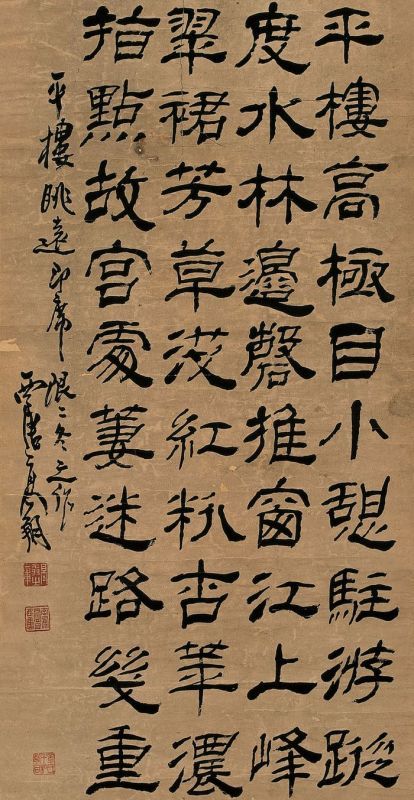 平樓高極目小憩駐游蹤
度水林邊磬推窗江上峰
翠裙芳草淺紅粉杏華濃
指點故宮處萋迷路幾重
平樓眺遠即席限二冬之作
西唐高翔